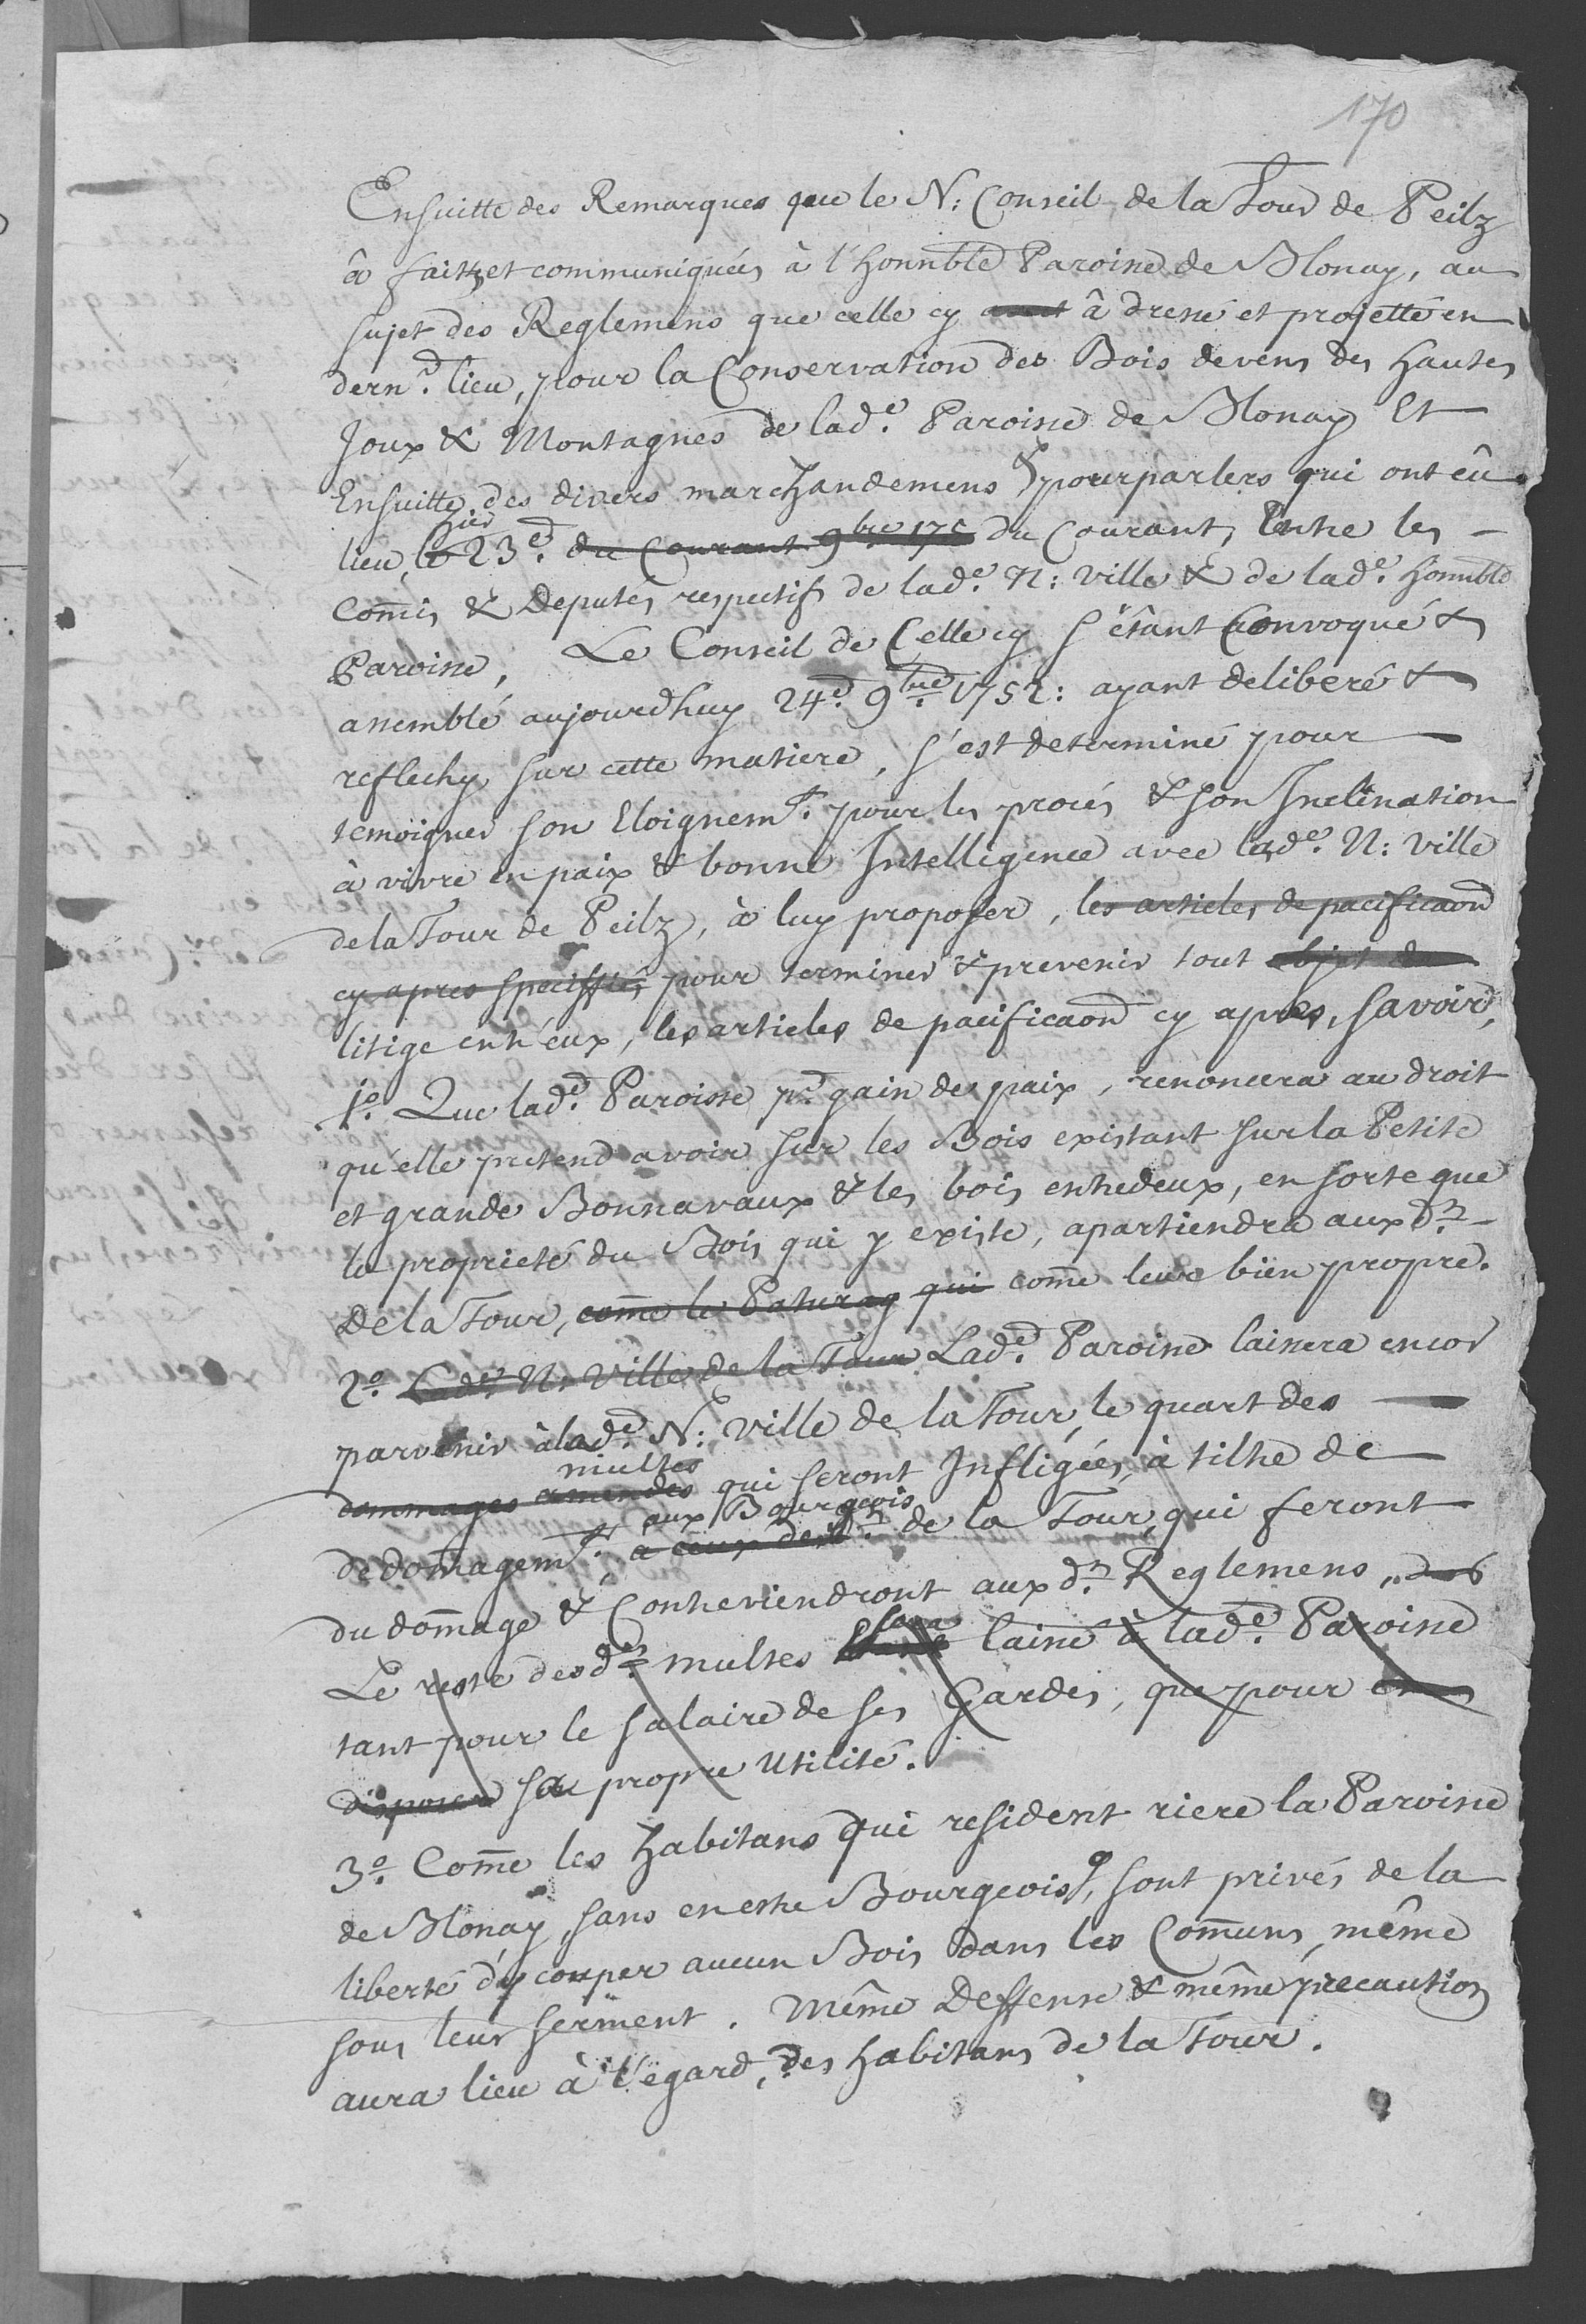 170
Ensuitte des Remarques que le N: Conseil de la Tour de Peilz
à faitt et communiquées à l'honnble Paroisse de Blonay, au
sujet des Reglemens que celle cy avoit â dressé et projetté en
dernr. lieu, pour la Conservation des Bois devens des hautes
Joux & Montagnes de lade. Paroisse de Blonay Et
Ensuitte des divers marchandemens & pourparlers qui ont eû
hier
lieu, le 23e. du Courant 9bre 175 du Courant, Entre les
Comis & Deputés respectifs de lade. N: ville & de lade. honnble
Paroisse, Le Conseil de Celle cy s'étant Convoqué &
assemblé aujourdhuy 24e. 9bre 1752: ayant deliberé &
reflechy sur cette matiere, s'est determiné pour
temoigner son Eloignemt. pour les procés & son Inclination
à vivre en paix & bonne Intelligence avec lade. N: ville
de la Tour de Peilz, à luy proposer, les articles de pacificaon
cy apres speciffiés pour terminer & prevenir tout objet de
litige entr'eux, les articles de pacificaon cy apres, savoir,
1o. Que lade. Paroisse pr. gain de paix, renoncera au droit
qu'elle pretend avoir sur les Bois existant sur la Petite
et grande Bonnavaux & les bois entredeux, en sorte que
la proprieté du Bois qui y existe, apartiendra aux drs.
De la Tour, come le Paturag qui come leur bien propre.
2o. Lade. N: Ville de la Tour Lade. Paroisse laissera encor
parvenir à lade. N: Ville de la Tour, le quart des
multes
dommages amendes qui seront Infligées, à tiltre de
aux Bourgeois
dedomagemt. à ceux des drs. de la Tour, qui feront
du domage & Contreviendront aux ds. Reglemens, des
sera
Le reste desdes. multes laissé à lade. Paroisse
tant pour le salaire de ses Gardes, que pour en
disposer sa propre Utilité.
3o. Come les habitans qui resident riere la Paroisse
de Blonay, sans en estre Bourgeois, sont privés de la
liberté d'y couper aucun Bois dans les Comuns, même
sous leur serment. Même Deffense & même precaution
aura lieu à l'egard, des habitans de la Tour.